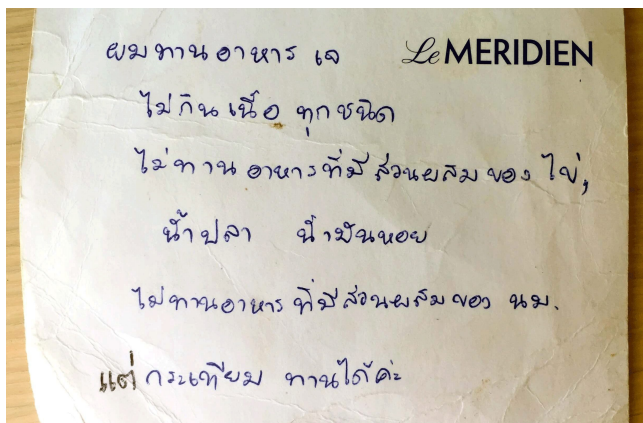 ผมทานอาหาร เจ Le MERIDIEN
ไม่กินเนื้อ ทุกชนิด
ไม่ทานอาหารที่มีส่วนผสมของ ไข่,
น้ำปลา น้ำมันหอย
ไม่ทานอาหารที่มีส่วนผสมของ นม.
แต่ กระเทียม ทานได้ค่ะ